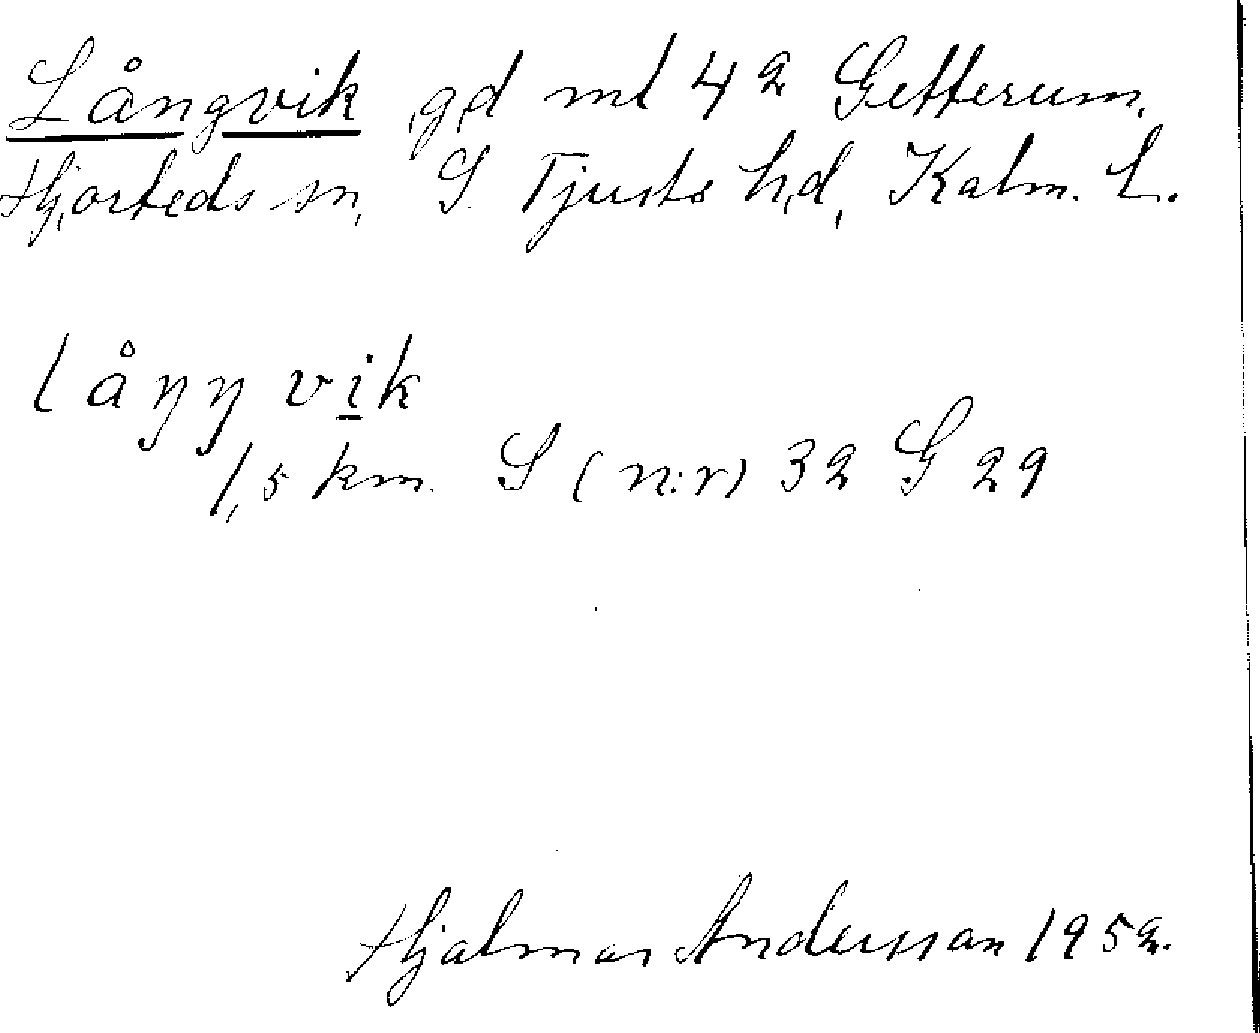 Långvik g,d ml 4 2 Getterum,
Hjorteds sn, S. Tjusts h,d, Kalm. L.
l å ŋ ŋ v i k
1,5 km. S (n:r) 32 G 29
Hjalmar Andersson 1952.